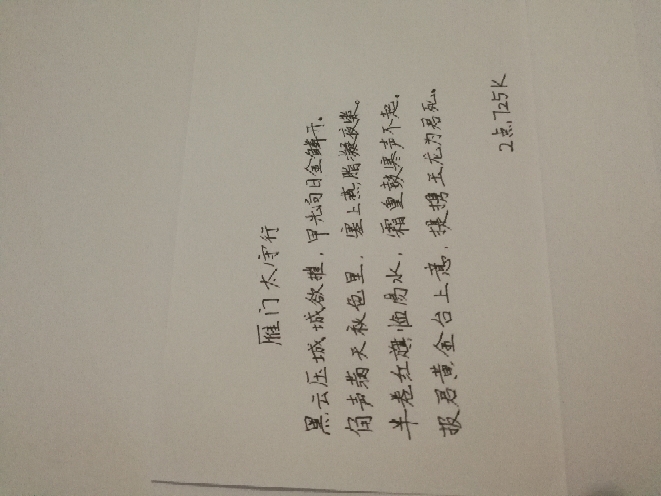 雁门太守行
黑云压城城欲摧，甲光向日金鳞开。
角声满天秋色里，塞上燕脂凝夜紫。
半卷红旗临易水，霜重鼓寒声不起。
报君黄金台上意，提携玉龙为君死。
2点.725K